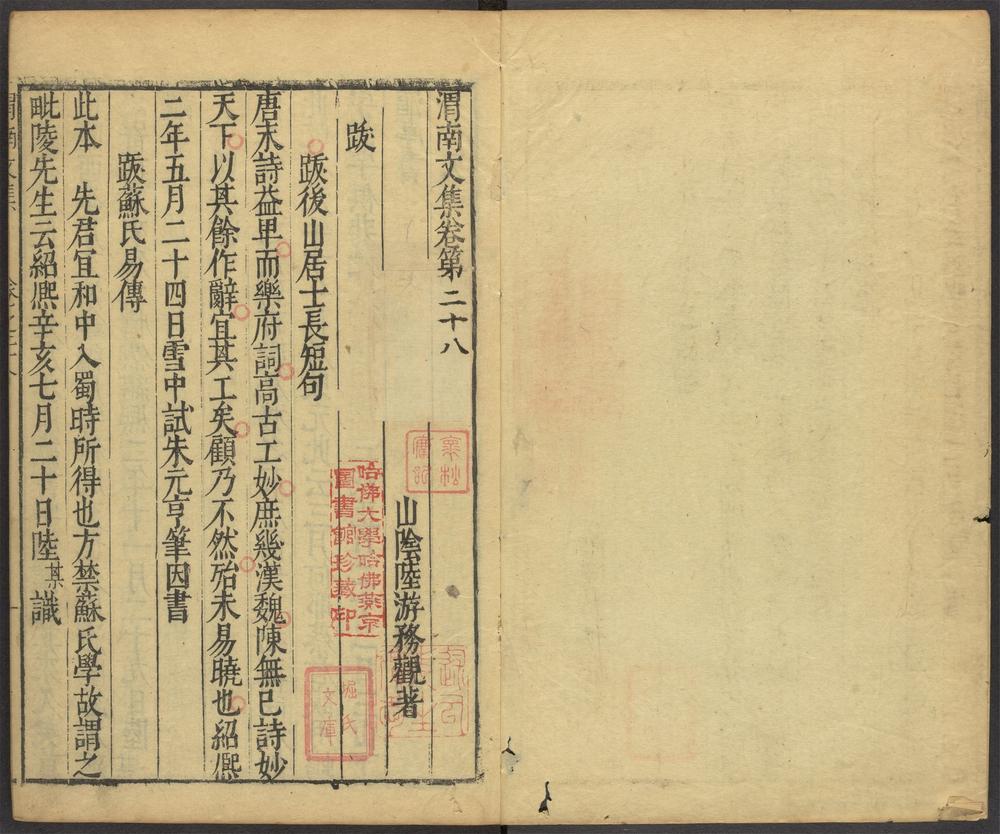 渭南文集卷第二十八
山陰陸游務觀著
跋
跋後山居士長短句
唐末詩益卑而樂府詞高古工妙庶幾漢魏陳無已詩妙
天下以其餘作辭宜其工矣顧乃不然殆未易曉也紹熙
二年五月二十四日雪中試朱元亨筆因書
跋蘇氏易傳
此本　先君宣和中入蜀時所得也方禁蘇氏學故謂之
毗陵先生云紹熙辛亥七月二十日陸某識
哈佛大學哈佛燕京
圖書館珍藏印
堀氏
文庫